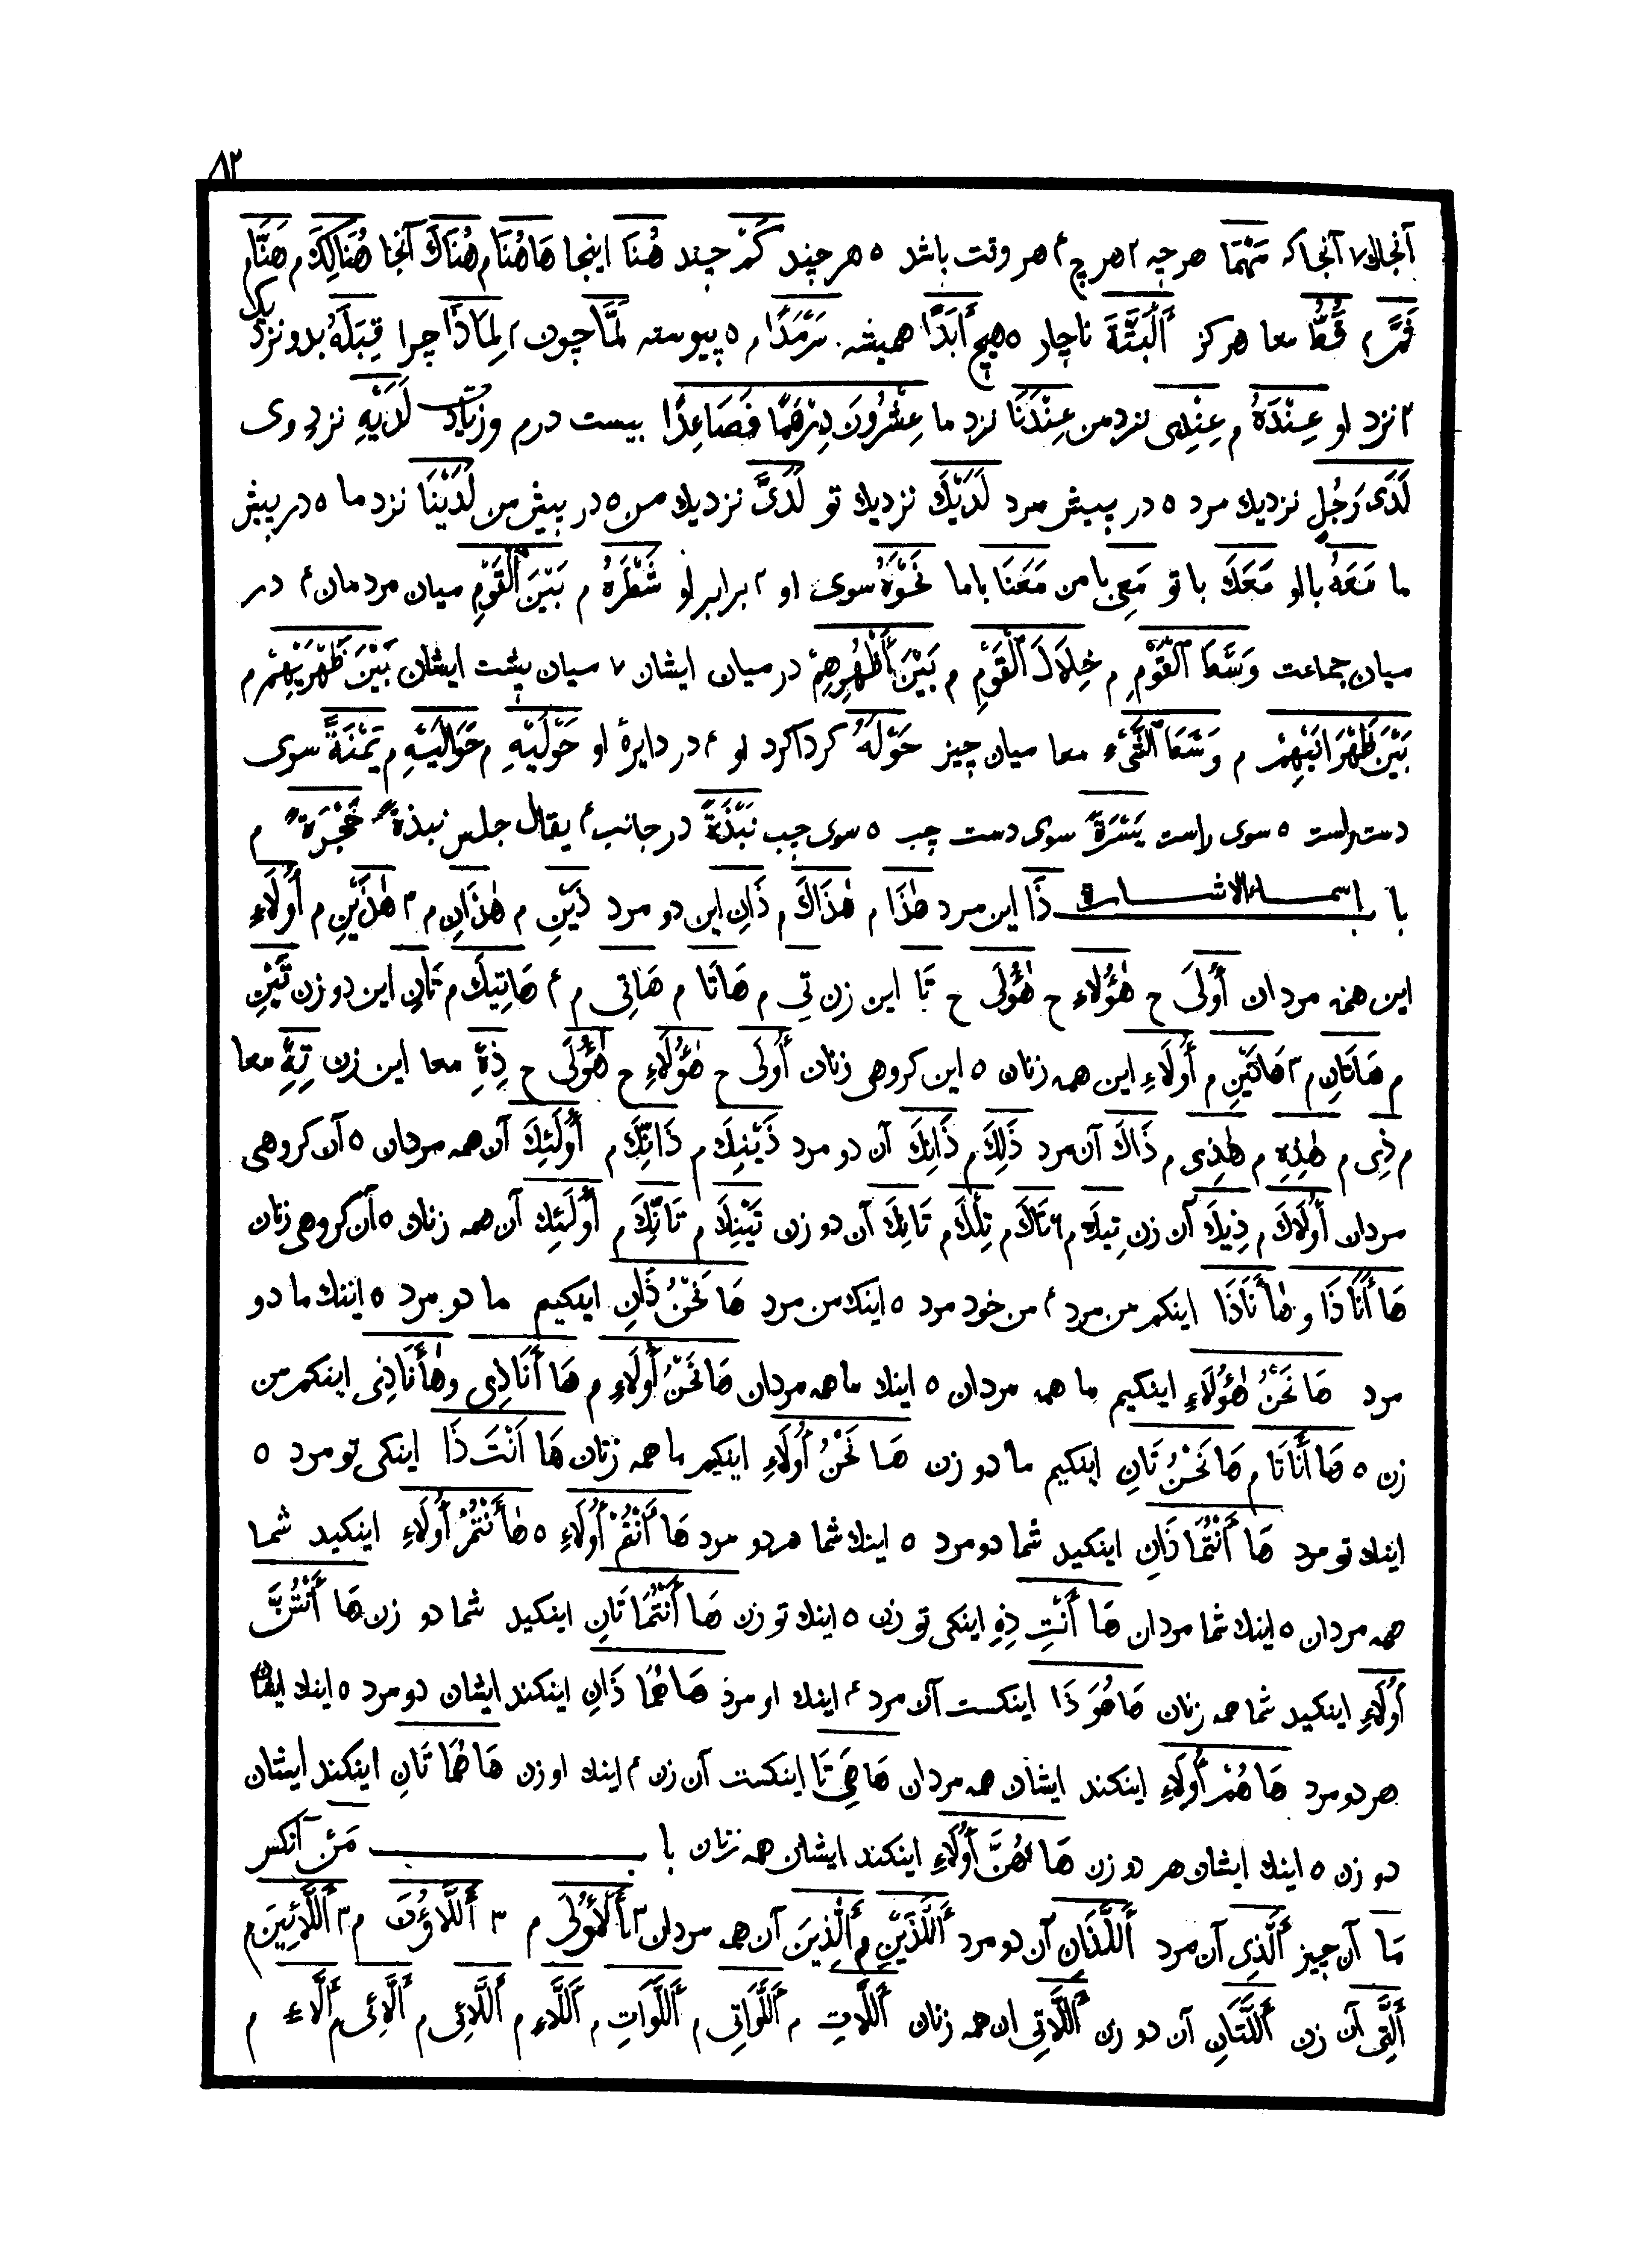 ۸۲
آنجاك ۷ آنجا که مَهْمَا هر چه ۲ هر چ ۴ هر وقت باشد ه هر چند كَمْ چند هُنَا اینجا هَاهُنَا م هُنَاكَ آنجا هُنَالِكَ م هَنَّا م
ثَمَّ م قَطُّ معا هرکز أَلْبَتَّةَ ناچار ه هیچ أَبَدًا همیشه سَرْمَدًا م ه پیوسته لَمَّا چون ۲ لِمَاذَا چرا قِبَلَهُ بدو نزدیك
۲ نزد او عِنْدَهُ م عِنْدِی نزد من عِنْدَنَا نزد ما عِشْرُونَ دِرْهَمًا فَصَاعِدًا بیست درم و زیادت لَدَيْهِ نزد وی
لَدَى رَجُلٍ نزدیك مرد ه در پیش مرد لَدَيْكَ نزدیك تو لَدَیَّ نزدیك من ه در پیش من لَدَيْنَا نزد ما ه در پیش
ما مَعَهُ با او مَعَكَ با تو مَعِی با من مَعَنَا با ما نَحْوَهُ سوی او ۲ برابر او شَطْرَهُ م بَيْنَ ٱلْقَوْمِ میان مردمان ۴ در
میان جماعت وَسَطَ ٱلْقَوْمِ م خِلَالَ ٱلْقَوْمِ م بَيْنَ أَظْهُرِهِمْ در میان ایشان ۷ میان پشت ایشان بَيْنَ ظَهْرَيْهِمْ م
بَيْنَ ظَهْرَانَيْهِمْ م وَسَطَ ٱلشَّیْءِ معا میان چیز حَوْلَهُ کرداکرد او ۴ در دایرهٔ او حَوْلَيْهِ م حَوَالَيْهِ م يَمْنَةً سوی
دست راست ه سوی راست يَسْرَةً سوی دست چپ ه سوی چپ نَبْذَةً در جانب ۴ یقال جلس نبذةً حَجْرَةً م
با ب اسماء الاشارة ذَا این مرد هٰذَا م هٰذَاكَ م ذَانِ این دو مرد ذَيْنِ م هٰذَانِ م ۳ هٰذَيْنِ م أُولَاءِ
این همه مردان أُولَى ح هٰؤُلَاءِ ح هٰؤُلَى ح تَا این زن تِی م هَاتَا م هَاتِی م ۴ هَاتِيكَ م تَانِ این دو زن تَيْنِ
م هَاتَانِ م ۳ هَاتَيْنِ م أُولَاءِ این همه زنان ه این کروهی زنان أُولَى ح هٰؤُلَاءِ ح هٰؤُلَى ح ذِهِ معا این زن تِهِ معا
م ذِی م هٰذِهِ م هٰذِی م ذَاكَ آن مرد ذَلِكَ م ذَانِكَ آن دو مرد ذَيْنِكَ م ذَانِّكَ م أُولَئِكَ آن همه مردان ه آن کروهی
مردان أُولَاكَ م ذِيكَ آن زن تِيكَ م ۶ تَاكَ م تِلْكَ م تَانِكَ آن دو زن تَيْنِكَ م تَانِّكَ م أُولَئِكَ آن همه زنان ه آن کروهی زنان
هَا أَنَا ذَا و هٰأَنَاذَا اینکم من مرد ۴ من خود مرد ه اینك من مرد هَا نَحْنُ ذَانِ اینکیم ما دو مرد ه اینك ما دو
مرد هَا نَحْنُ هٰؤُلَاءِ اینکیم ما همه مردان ه اینك ما همه مردان هَا نَحْنُ أُولَاءِ م هَا أَنَا ذِی و هٰأَنَاذِی اینکم من
زن ه هَا أَنَا تَا م هَا نَحْنُ تَانِ اینکیم ما دو زن هَا نَحْنُ أُولَاءِ اینکیم ما همه زنان هَا أَنْتَ ذَا اینکی تو مرد ه
اینك تو مرد هَا أَنْتُمَا ذَانِ اینکید شما دو مرد ه اینك شما هر دو مرد هَا أَنْتُمْ أُولَاءِ ه هٰأَنْتُمْ أُولَاءِ اینکید شما
همه مردان ه اینك شما مردان هَا أَنْتِ ذِهِ اینکی تو زن ه اینك تو زن هَا أَنْتُمَا تَانِ اینکید شما دو زن هَا أَنْتُنَّ
أُولَاءِ اینکید شما همه زنان هَا هُوَ ذَا اینکست آن مرد ۴ اینك او مرد هَا هُمَا ذَانِ اینکند ایشان دو مرد ه اینك ایشان
هر دو مرد هَا هُمْ أُولَاءِ اینکند ایشان همه مردان هَا هِیَ تَا اینکست آن زن ۴ اینك او زن هَا هُمَا تَانِ اینکند ایشان
دو زن ه اینك ایشان هر دو زن هَا هُنَّ أُولَاءِ اینکند ایشان همه زنان با ب مَنْ آنکس
مَا آن چیز أَلَّذِی آن مرد أَللَّذَانِ آن دو مرد أَللَّذَيْنِ م أَلَّذِينَ آن همه مردان ۳ أَلْأُولَى م ۳ أَللَّاؤُنَ م ۳ أَللَّائِينَ م
أَلَّتِی آن زن أَللَّتَانِ آن دو زن أَللَّاتِی آن همه زنان أَللَّاتِ م أَللَّوَاتِی م أَللَّوَاتِ م أَللَّاءِ م أَللَّائِی م أَلَّائِی م أَلَّاءِ م